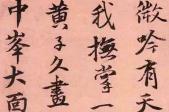 微吟有天
我撫掌一
黄子久畫
中峯大面